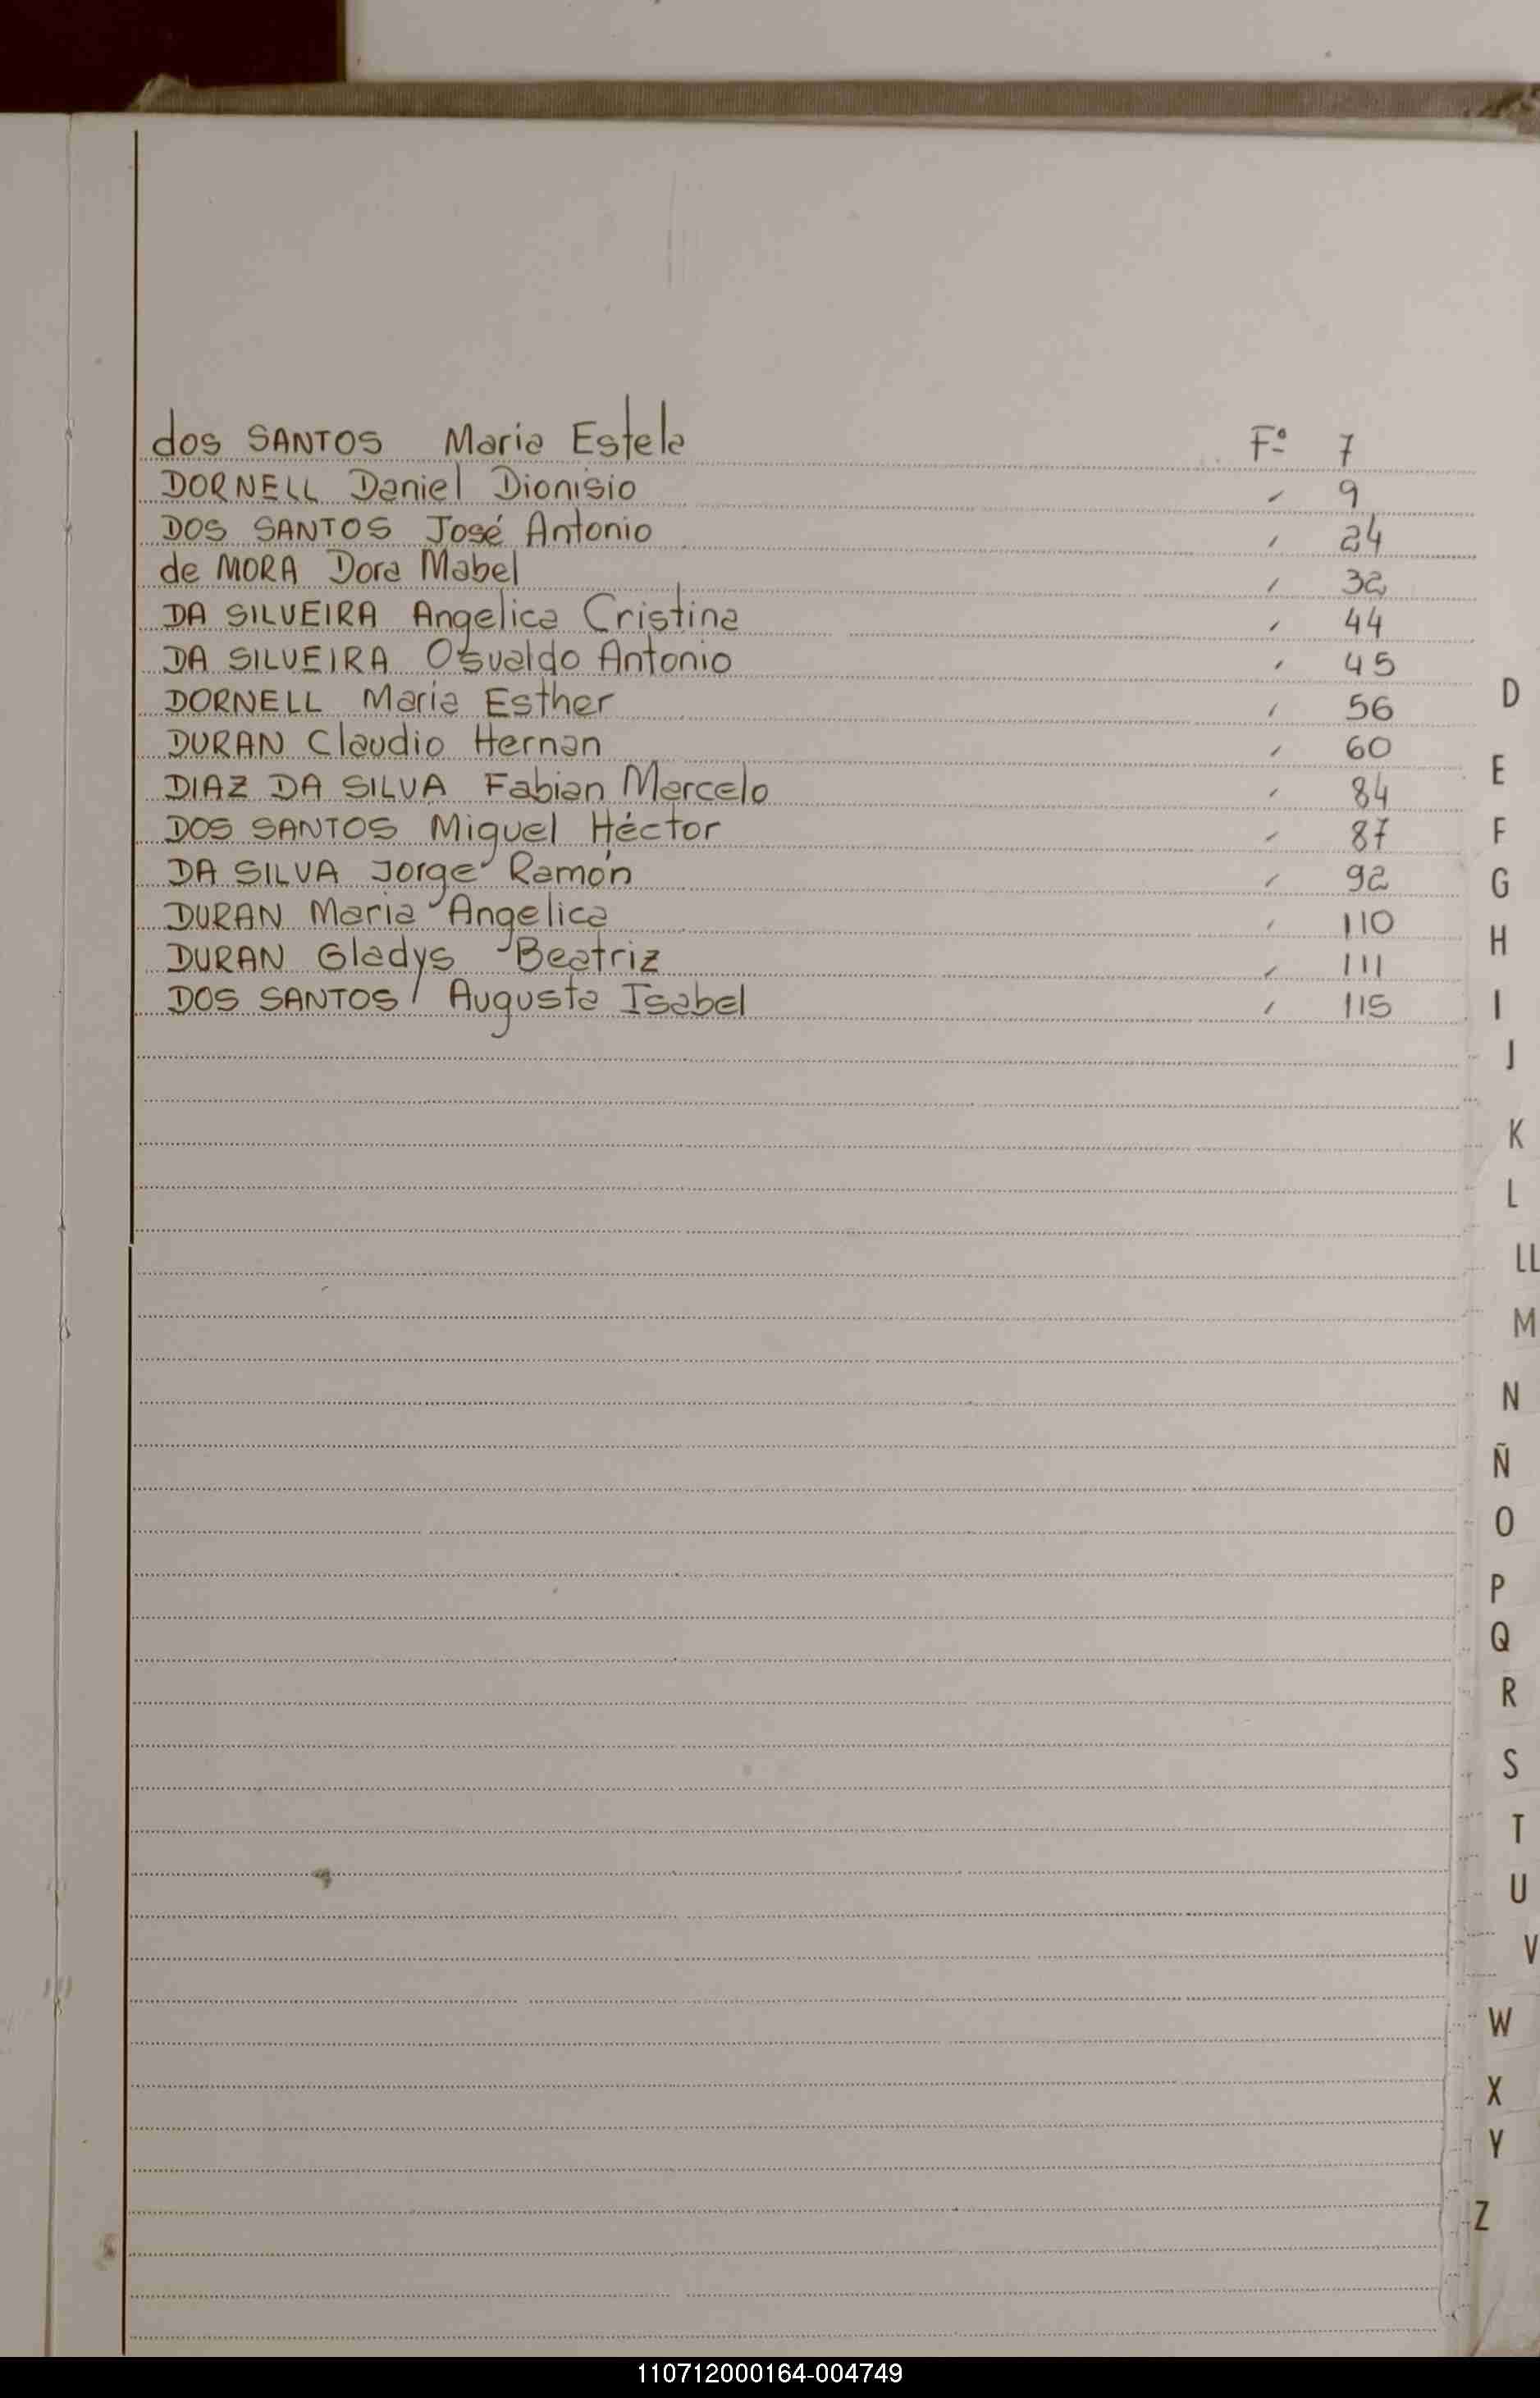 dos SANTOS Maria Estela Fº 7
DORNELL Daniel Dionisio " 9
DOS SANTOS José Antonio " 24
de MORA Dora Mabel " 32
DA SILVEIRA Angelica Cristina " 44
DA SILVEIRA Osvaldo Antonio " 45
DORNELL Maria Esther " 56
DURAN Claudio Hernan " 60
DIAZ DA SILVA Fabian Marcelo " 84
DOS SANTOS Miguel Héctor " 87
DA SILVA Jorge Ramón " 92
DURAN Maria Angelica " 110
DURAN Gladys Beatriz " 111
DOS SANTOS Augusta Isabel " 115
D
E
F
G
H
I
J
K
L
LL
M
N
Ñ
O
P
Q
R
S
T
U
V
W
X
Y
Z
110712000164-004749